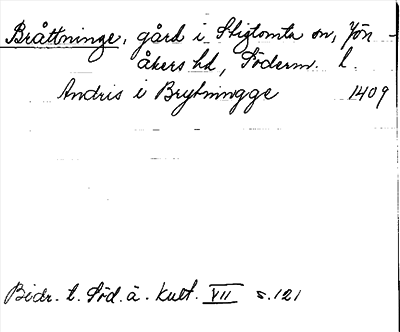 Bråttninge, gård i Stigtomta sn, Jön-
åkers hd, Söderm. l.
Andris i Brytningge 1409
Bidr. t. Söd. ä. kult. VII s. 121